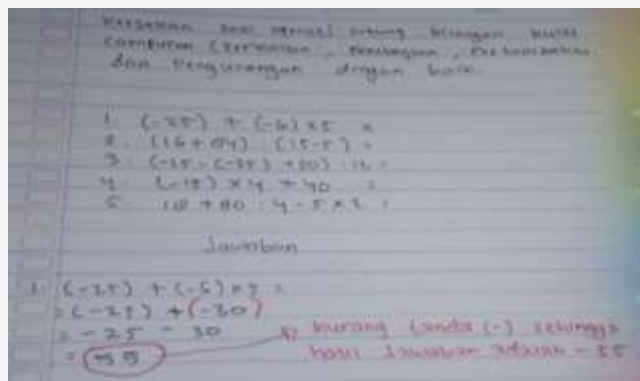 Kerjakan soal operasi hitung bilangan bulat
campuran (perkalian, pembagian, Penjumlahan
dan Pengurangan dengan baik
1. (-25) + (-6) x 5 =
2. (16 + 84) : (15 - 5) =
4. (-15) x 4 + 40 =
5. 10 + 80 : 4 - 5 x 2 =
Jawaban
1. (-25) + (-6) x 5 =
= (-25) + (-30)
= -25 - 30
= 55
kurang tanda (-) sehingga
hasil Jawaban adalah - 55